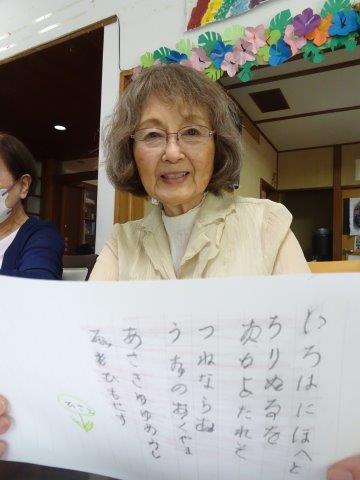 いろはにほへと
ちりぬるを
わかよたれそ
つねならぬ
うゐのおくやま
あさきゆめみし
ひもせす